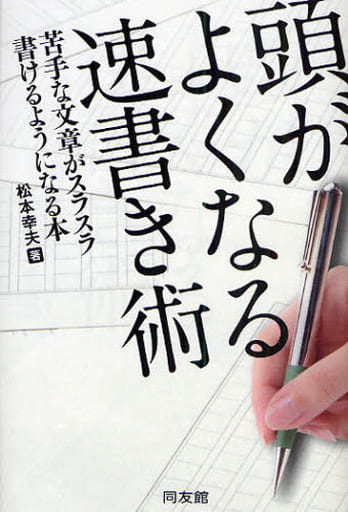 頭が
よくなる
速書き術
苦手な文章がスラスラ
書けるようになる本
松本幸夫 著
同友館